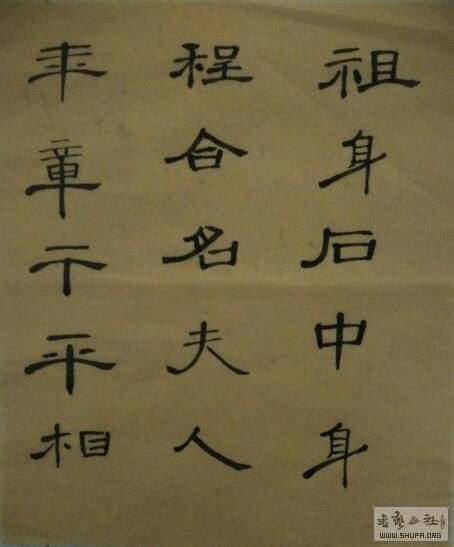 祖身石中身
程合名夫人
年章干平相
书艺公社
WWW.SHUFA.ORG